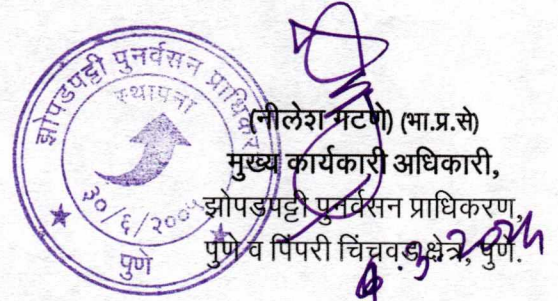 झोपडपट्टी पुनर्वसन प्राधिकरण
स्थापना
३०/६/२००५
पुणे
(नीलेश गटणे) (भा.प्र.से)
मुख्य कार्यकारी अधिकारी,
झोपडपट्टी पुनर्वसन प्राधिकरण,
पुणे व पिंपरी चिंचवड क्षेत्र, पुणे.